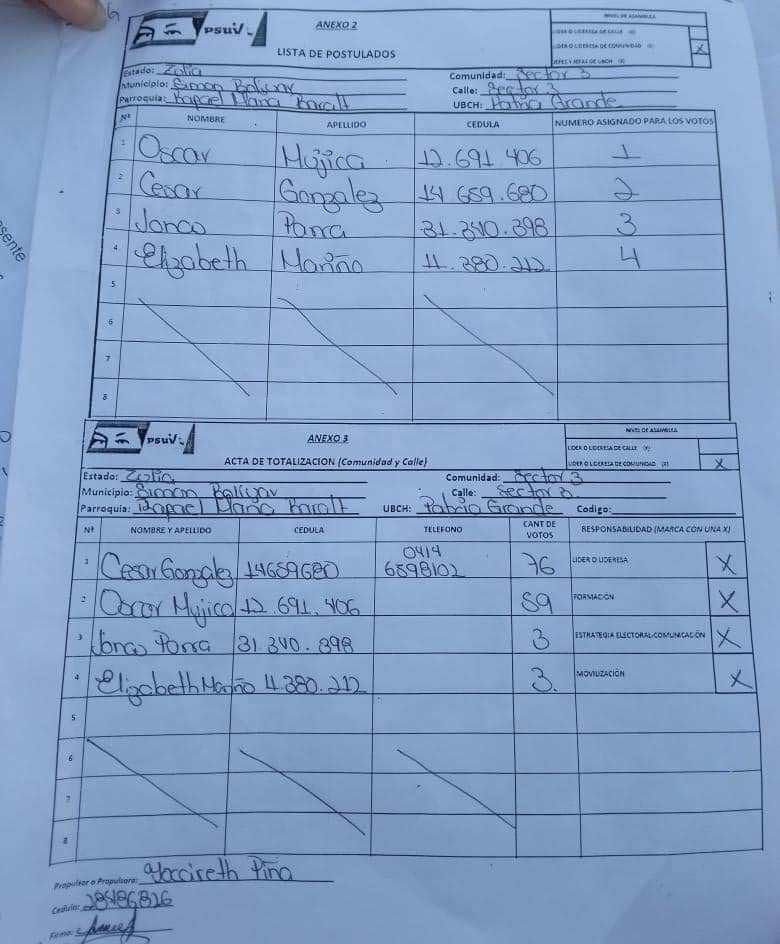 psuv
ANEXO 2
NIVEL DE ASAMBLEA
LISTA DE POSTULADOS
LIDER O LIDERESA DE CALLE (X)
LIDER O LIDERESA DE COMUNIDAD (X) X
JEFES Y JEFAS DE UBCH (X)
Estado: Zulia
Comunidad: Sector 3
Municipio: Simon Bolivar
Calle: Sector 3
Parroquia: Rafael Maria Baralt
UBCH: Patria Grande
Nº NOMBRE APELLIDO CEDULA NUMERO ASIGNADO PARA LOS VOTOS
1 Oscar Mujica 12.691.406 1
2 Cesar Gonzalez 14.659.680 2
3 Jonas Parra 31.340.398 3
4 Elizabeth Mariño 4.380.212 4
5
6
7
8
psuv
ANEXO 3
NIVEL DE ASAMBLEA
ACTA DE TOTALIZACION (Comunidad y Calle)
LIDER O LIDERESA DE CALLE (X)
LIDER O LIDERESA DE COMUNIDAD (X) X
Estado: Zulia
Comunidad: Sector 3
Municipio: Simon Bolivar
Calle: Sector 3
Parroquia: Rafael Maria Baralt UBCH: Patria Grande Codigo:
Nº NOMBRE Y APELLIDO CEDULA TELEFONO CANT DE VOTOS RESPONSABILIDAD (MARCA CON UNA X)
1 Cesar Gonzalez 14659680 0414 6598102 76 LIDER O LIDERESA X
2 Oscar Mujica 12.691.406 59 FORMACIÓN X
3 Jonas Parra 31.340.398 3 ESTRATEGIA ELECTORAL-COMUNICACIÓN X
4 Elizabeth Mariño 4.380.212 3. MOVILIZACIÓN X
5
6
7
8
Propulsor o Propulsora: Yacsireth Piña
Cedula: 28486826
Firma: